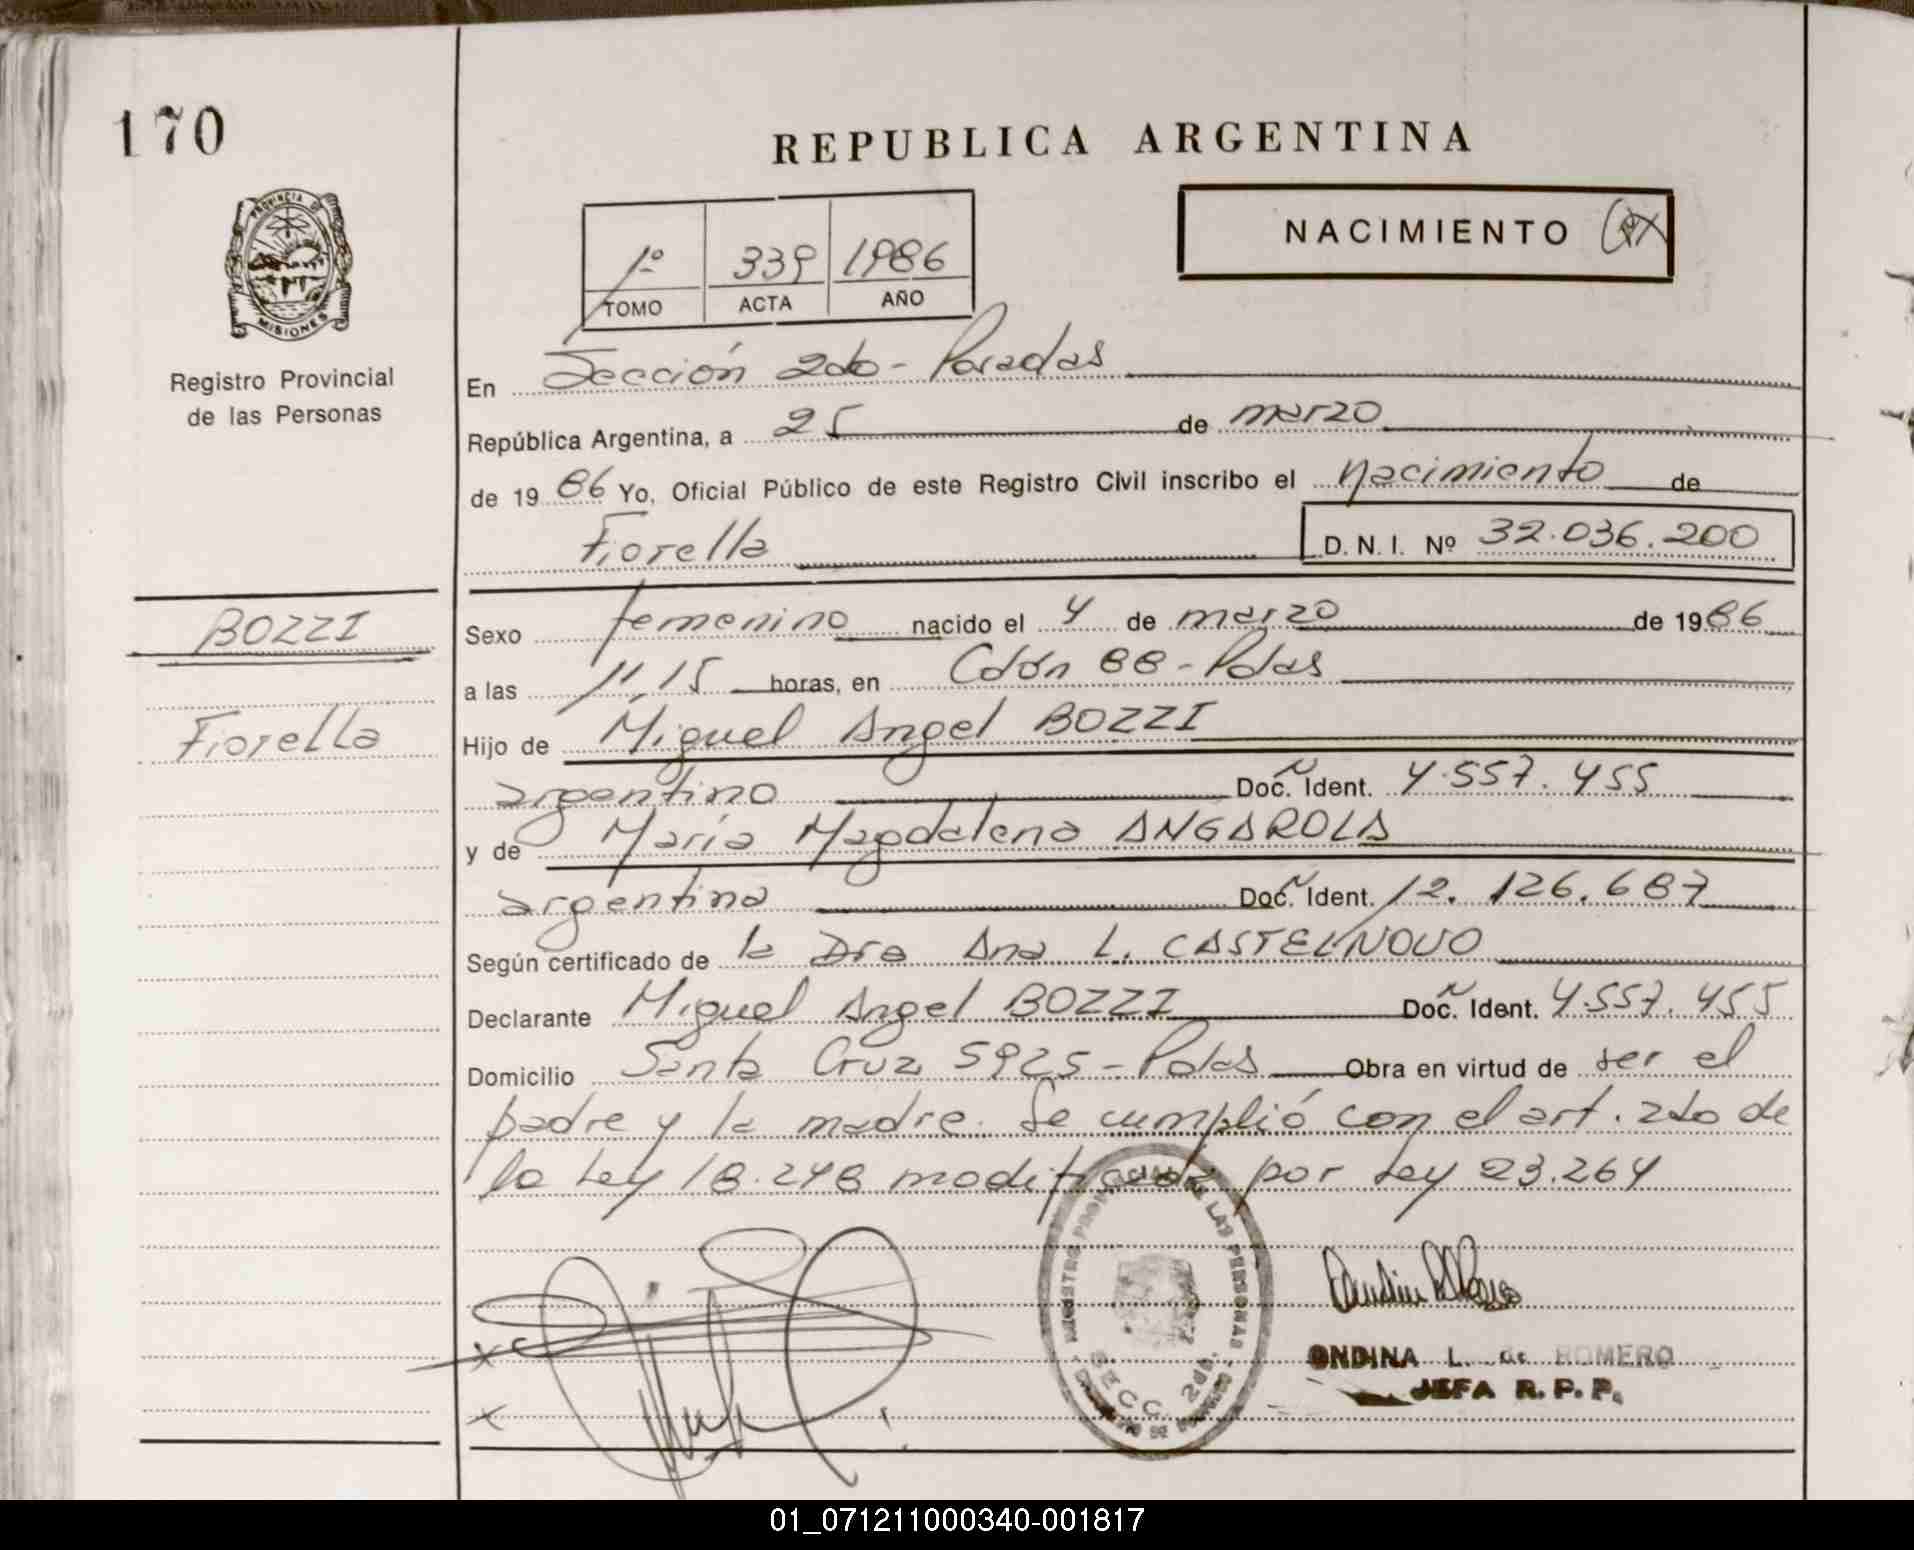 170
REPUBLICA ARGENTINA
NACIMIENTO
PROVINCIA DE
MISIONES
1º 339 1986
TOMO ACTA AÑO
Registro Provincial
de las Personas
En Sección 2da - Posadas
República Argentina, a 25 de marzo
de 1986 Yo, Oficial Público de este Registro Civil inscribo el nacimiento de
Fiorella D. N. I. Nº 32.036.200
BOZZI
Fiorella
Sexo femenino nacido el 4 de marzo de 1986
a las 11,15 horas, en Colón 88 - Pdas
Hijo de Miguel Angel BOZZI
argentino Doc. Ident. 4.557.455
y de María Magdalena ANGAROLA
argentina Doc. Ident. 12.126.687
Según certificado de la Dra Ana L. CASTELNOVO
Declarante Miguel Angel BOZZI Doc. Ident. 4.557.455
Domicilio Santa Cruz 5925 - Pdas Obra en virtud de ser el
padre y la madre. Se cumplió con el art. 2do de
la Ley 18.248 modificada por Ley 23.264
REGISTRO PROVINCIAL DE LAS PERSONAS
SECC. 2da.
ONDINA L. de ROMERO
JEFA R. P. P.
01_071211000340-001817